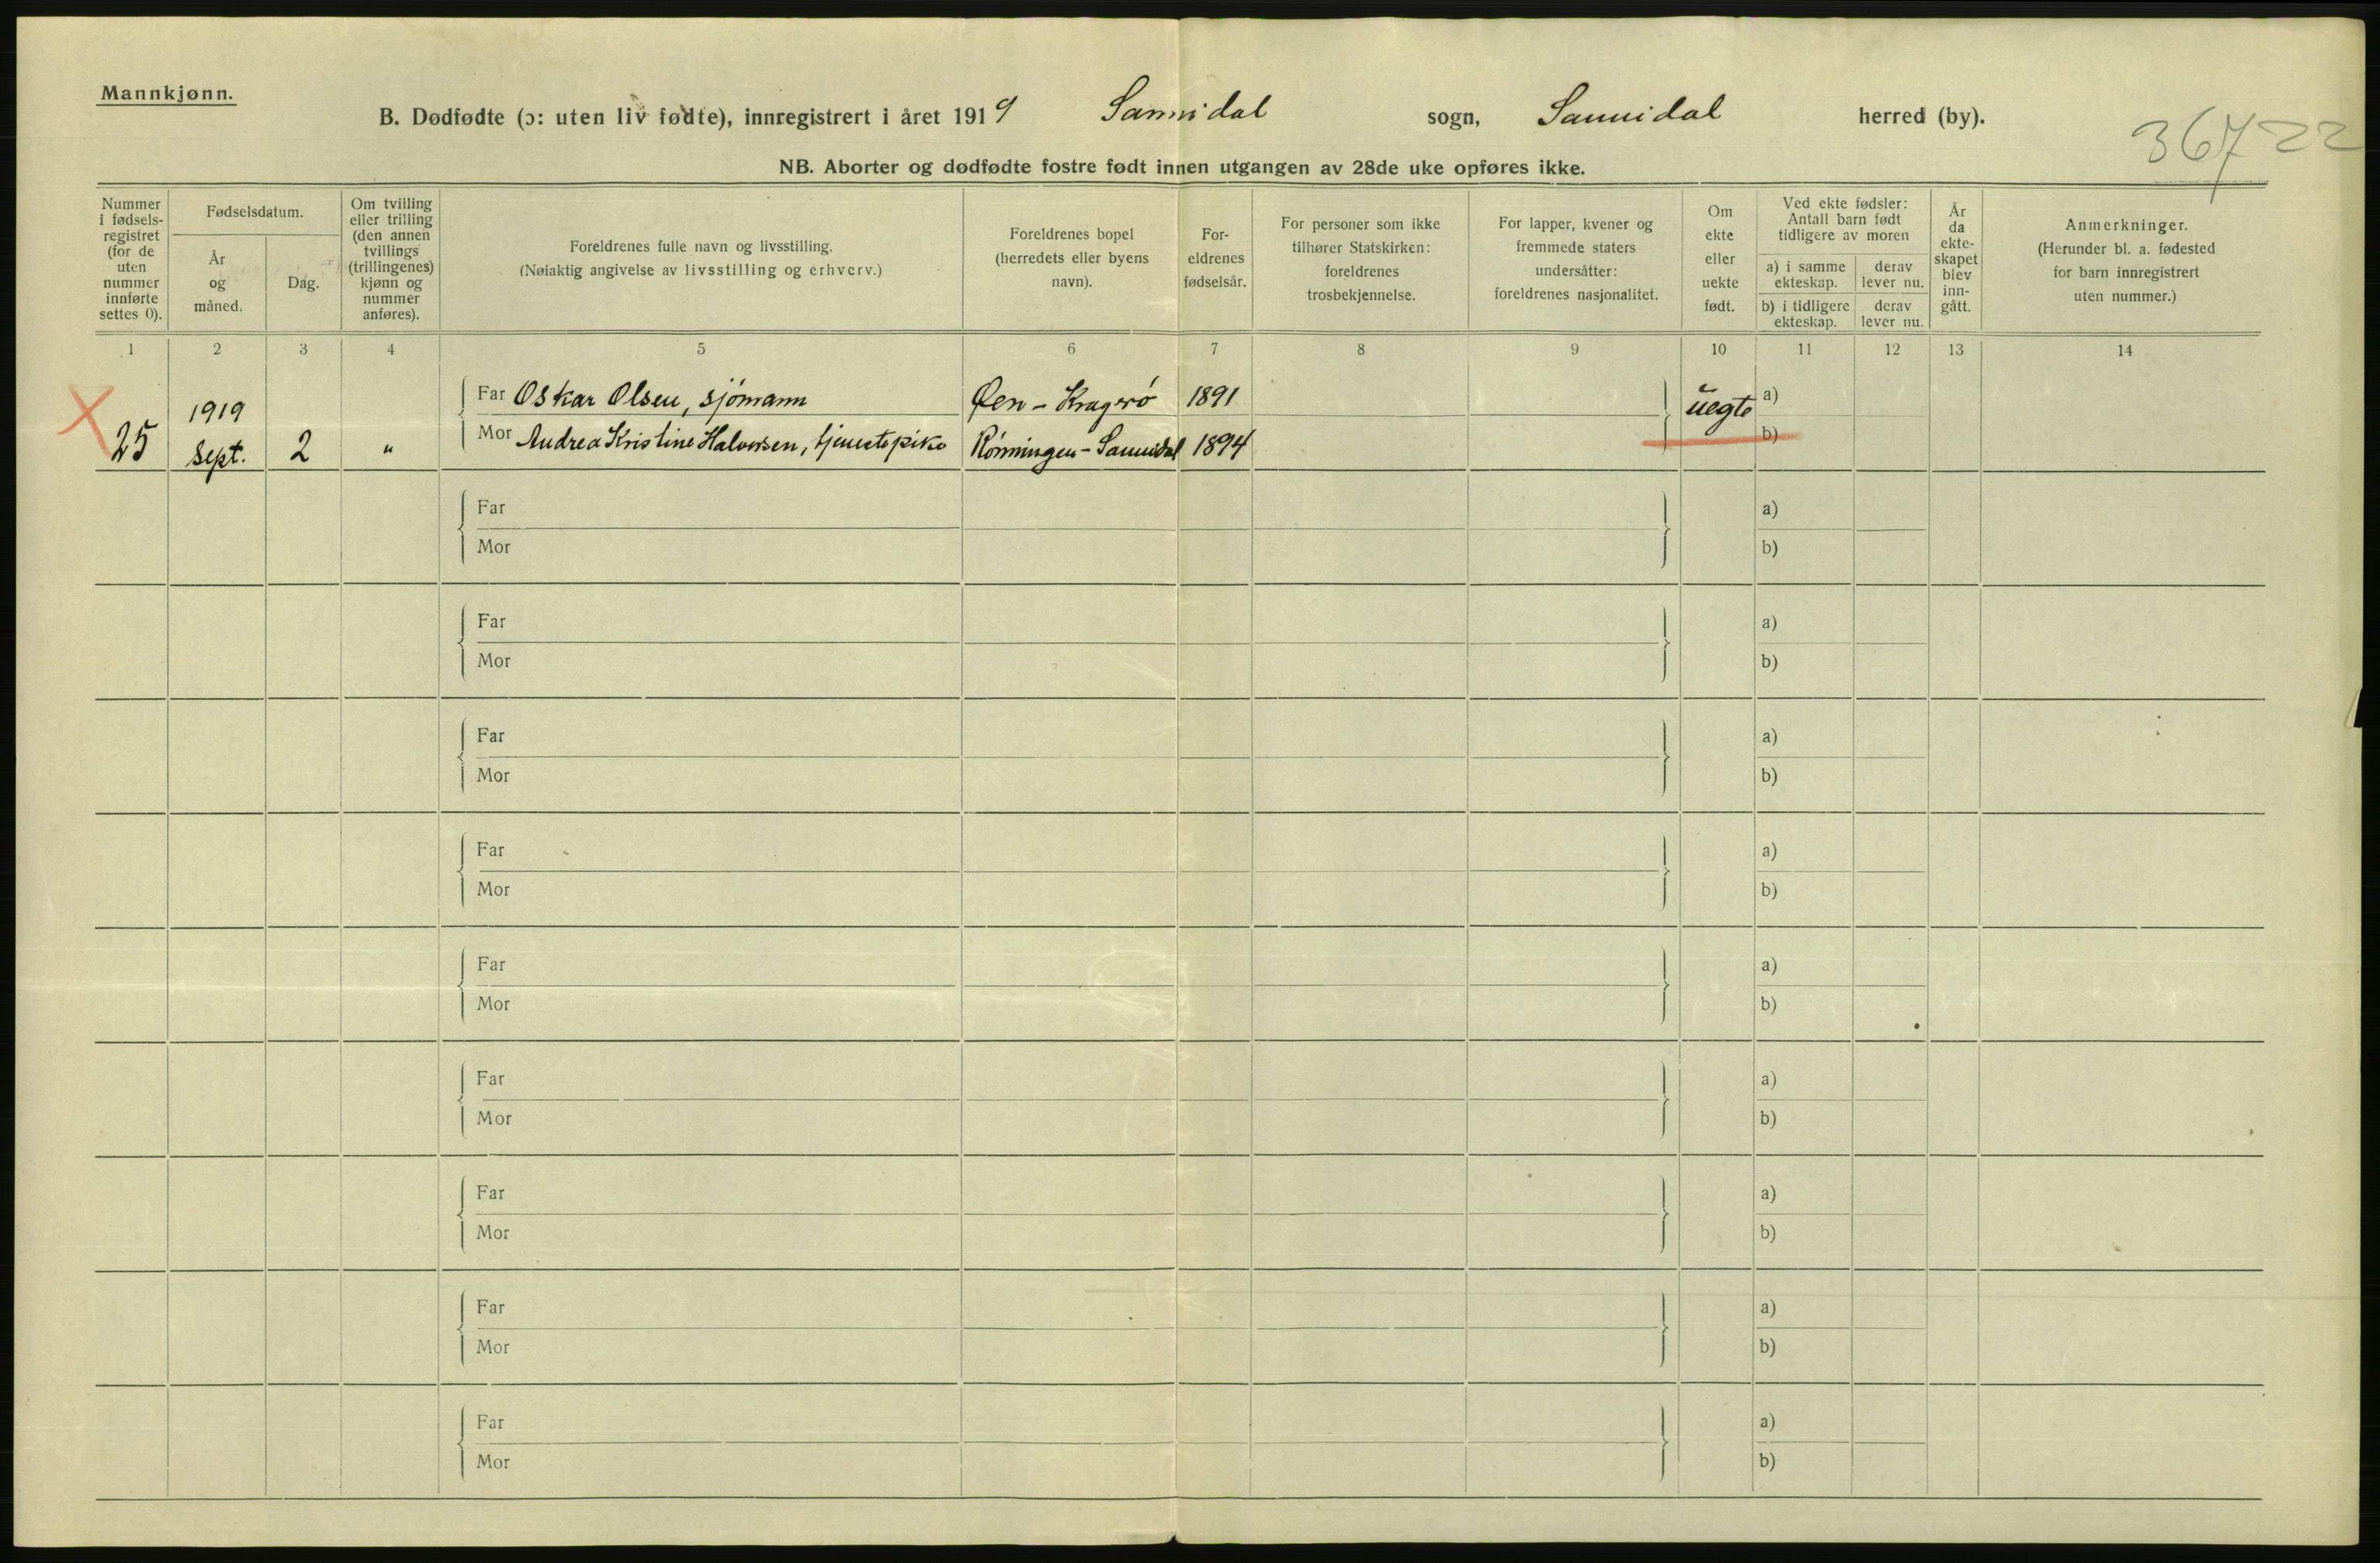 Mannkjønn.
B. Dødfødte (ɔ: uten liv fødte), innregistrert i året 1919 Sannidal sogn, Sannidal herred (by).
36722
NB. Aborter og dødfødte fostre født innen utgangen av 28de uke opføres ikke.
Nummer i fødsels-registret (for de uten nummer innførte settes 0).
Fødselsdatum.
År og måned.
Dag.
Om tvilling eller trilling (den annen tvillings (trillingenes) kjønn og nummer anføres).
Foreldrenes fulle navn og livsstilling.
(Nøiaktig angivelse av livsstilling og erhverv.)
Foreldrenes bopel (herredets eller byens navn).
For-eldrenes fødselsår.
For personer som ikke tilhører Statskirken: foreldrenes trosbekjennelse.
For lapper, kvener og fremmede staters undersåtter: foreldrenes nasjonalitet.
Om ekte eller uekte født.
Ved ekte fødsler: Antall barn født tidligere av moren
a) i samme ekteskap.
derav lever nu.
b) i tidligere ekteskap.
derav lever nu.
År da ekte-skapet blev inn-gått.
Anmerkninger.
(Herunder bl. a. fødested for barn innregistrert uten nummer.)
1 2 3 4 5 6 7 8 9 10 11 12 13 14
1919 Far Oskar Olsen, sjömann Øen - Kragerö 1891 uegte a)
25 Sept. 2 " Mor Andrea Kristine Halvorsen, tjenestepike Rönningen - Sannidal 1894 b)
Far a)
Mor b)
Far a)
Mor b)
Far a)
Mor b)
Far a)
Mor b)
Far a)
Mor b)
Far a)
Mor b)
Far a)
Mor b)
Far a)
Mor b)
Far a)
Mor b)